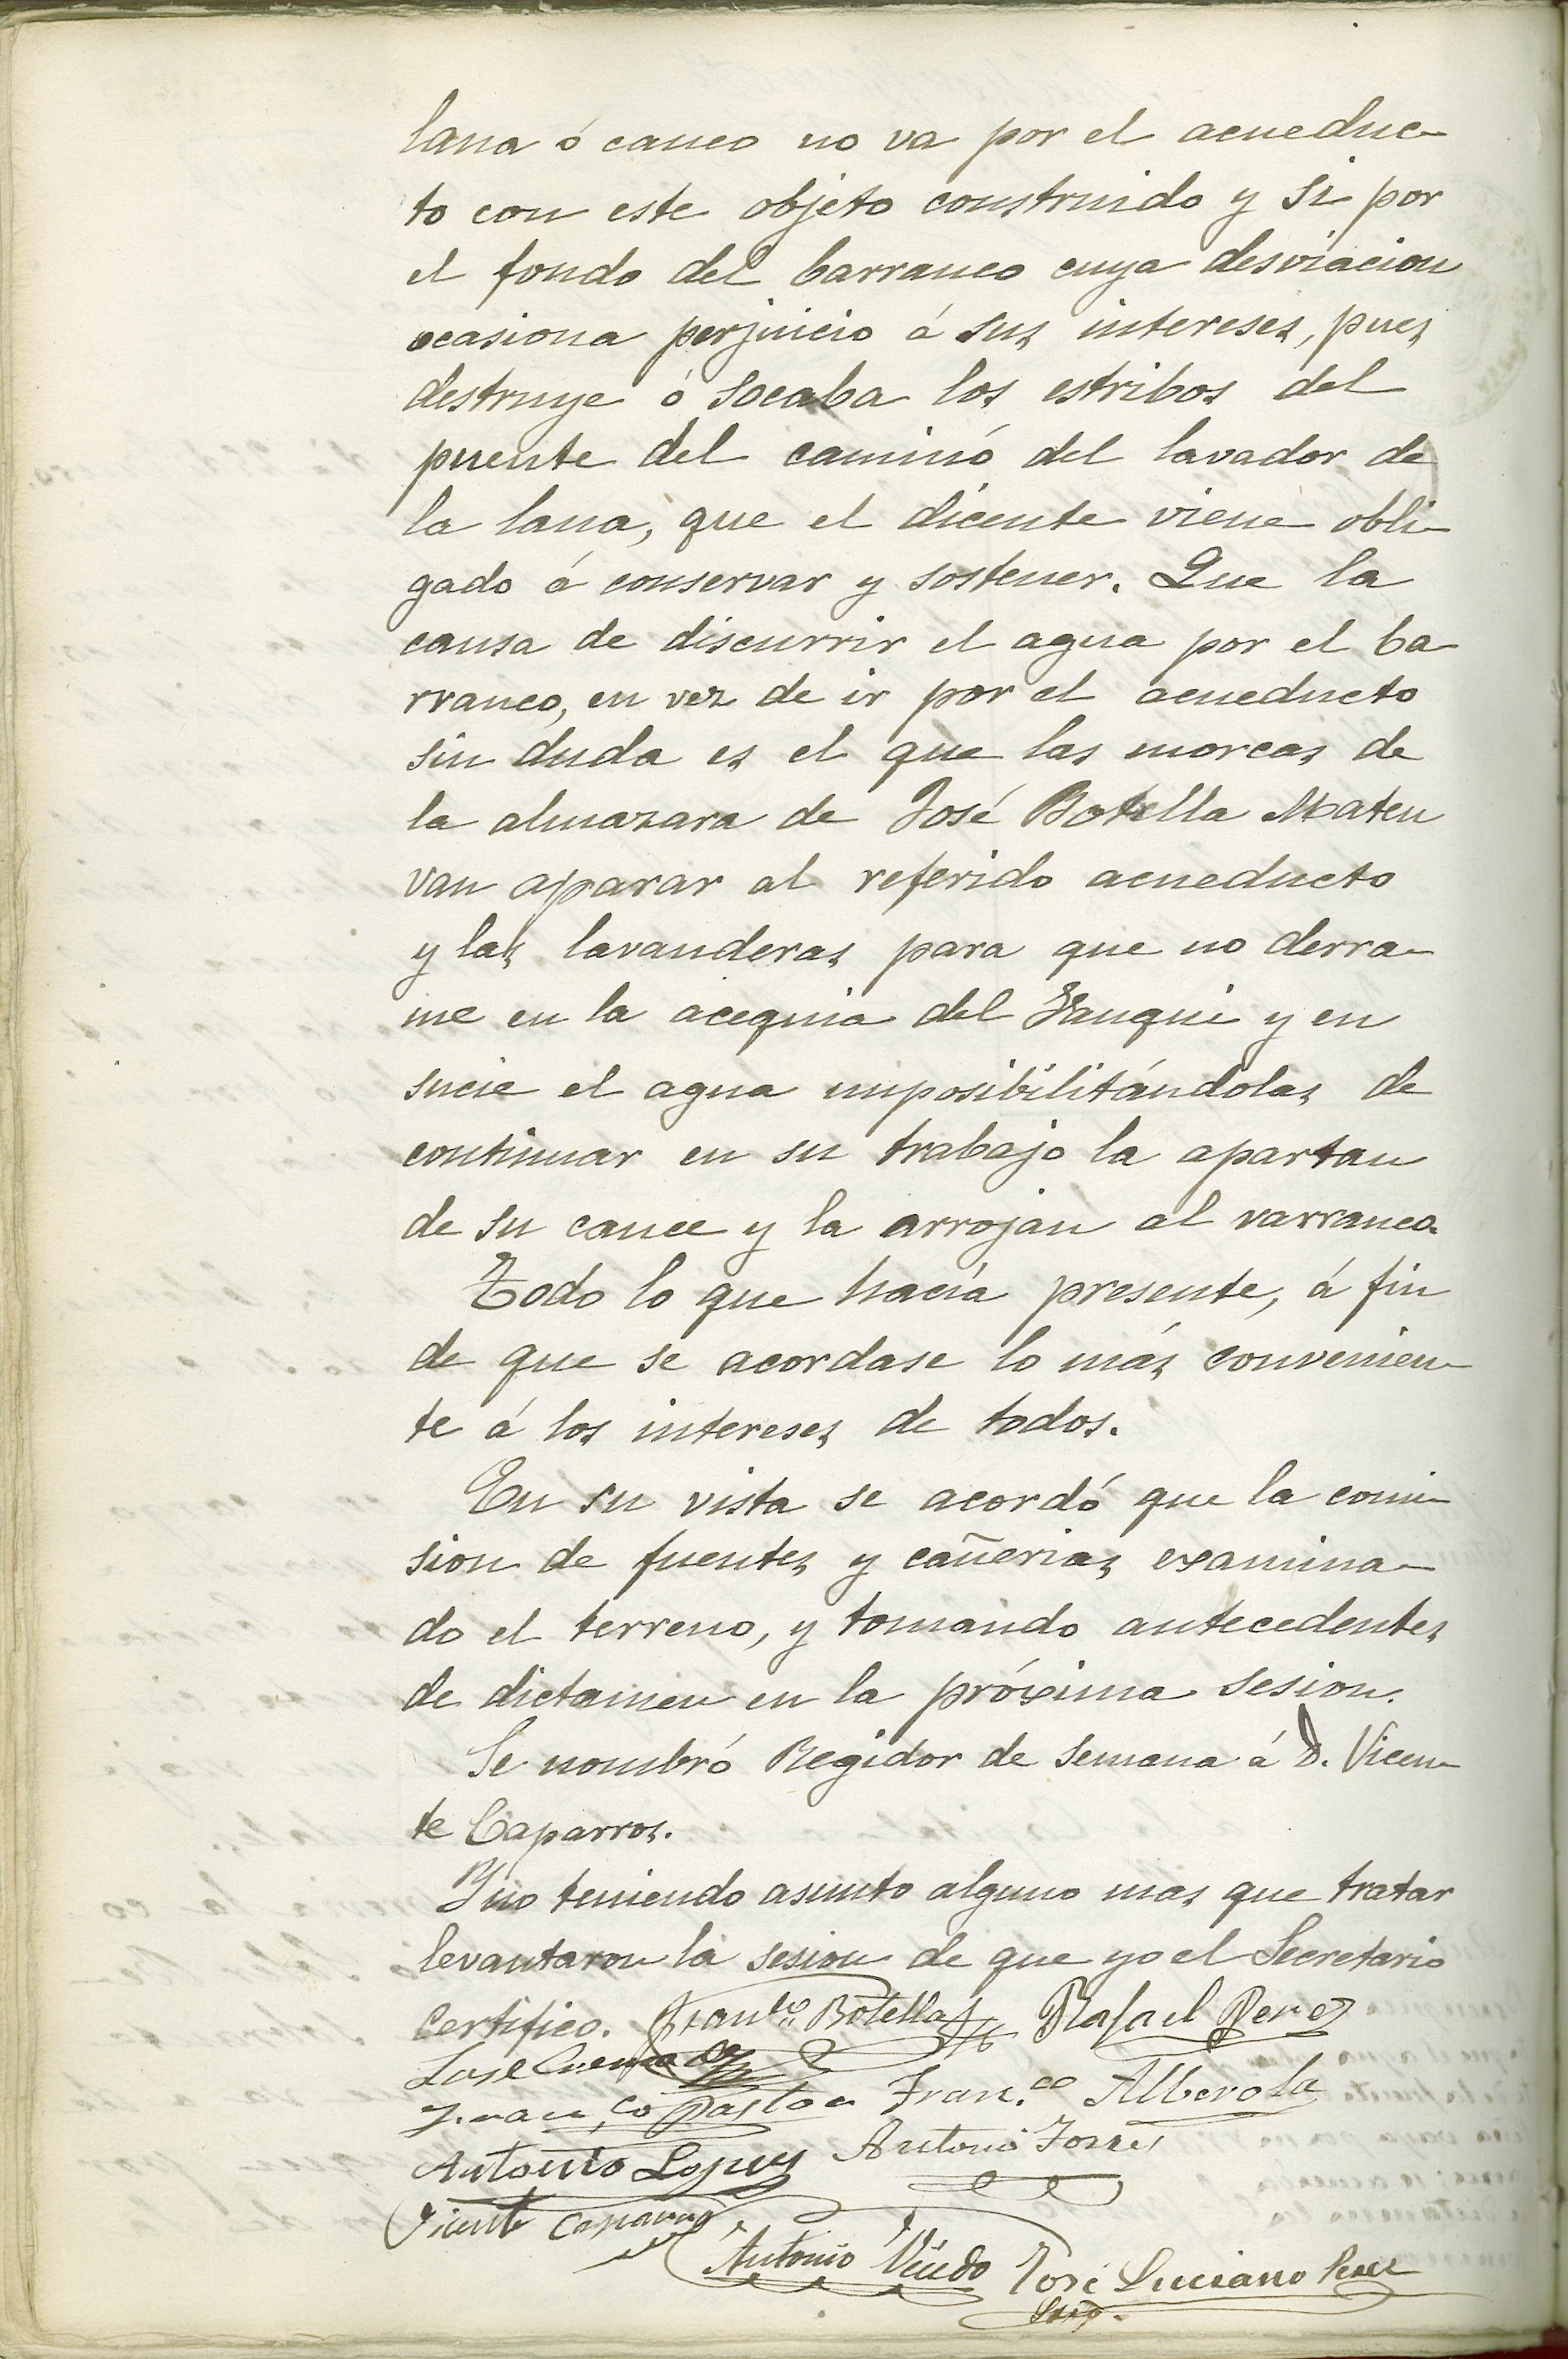 lana ó cauco no va por el acueduc-
to con este objeto construido y si por
el fondo del barranco cuya desviacion
ocasiona perjuicio á sus intereses, pues
destruye ó socaba los estribos del
puente del caminó del lavador de
la lana, que el dicente viene obli-
gado á conservar y sostener. Que la
causa de discurrir el agua por el ba-
rranco, en vez de ir por el acueducto
sin duda es el que las morcas de
la almazara de José Botella Mateu
van aparar al referido acueducto
y las lavanderas para que no derra-
me en la acequia del Fanqui y en
sucie el agua imposibilitándolas de
continuar en su trabajo la apartan
de su cauce y la arrojan al varranco.
Todo lo que hacía presente, á fin
de que se acordase lo más convenien-
te á los intereses de todos.
En su vista se acordó que la comi-
sion de fuentes y cañerias examina-
do el terreno, y tomando antecedentes
de dictamen en la próxima sesion.
Se nombró Regidor de semana á D. Vicen-
te Caparros.
Y no teniendo asunto alguno mas que tratar
levantaron la sesion de que yo el Secretario
certifico. Franco Botella Rafael Perez
José
Franco Pastor Franco Alberola
Antonio Lopez Antonio Torres
Vicente Caparros
Antonio José Luciano Perez
Srio.